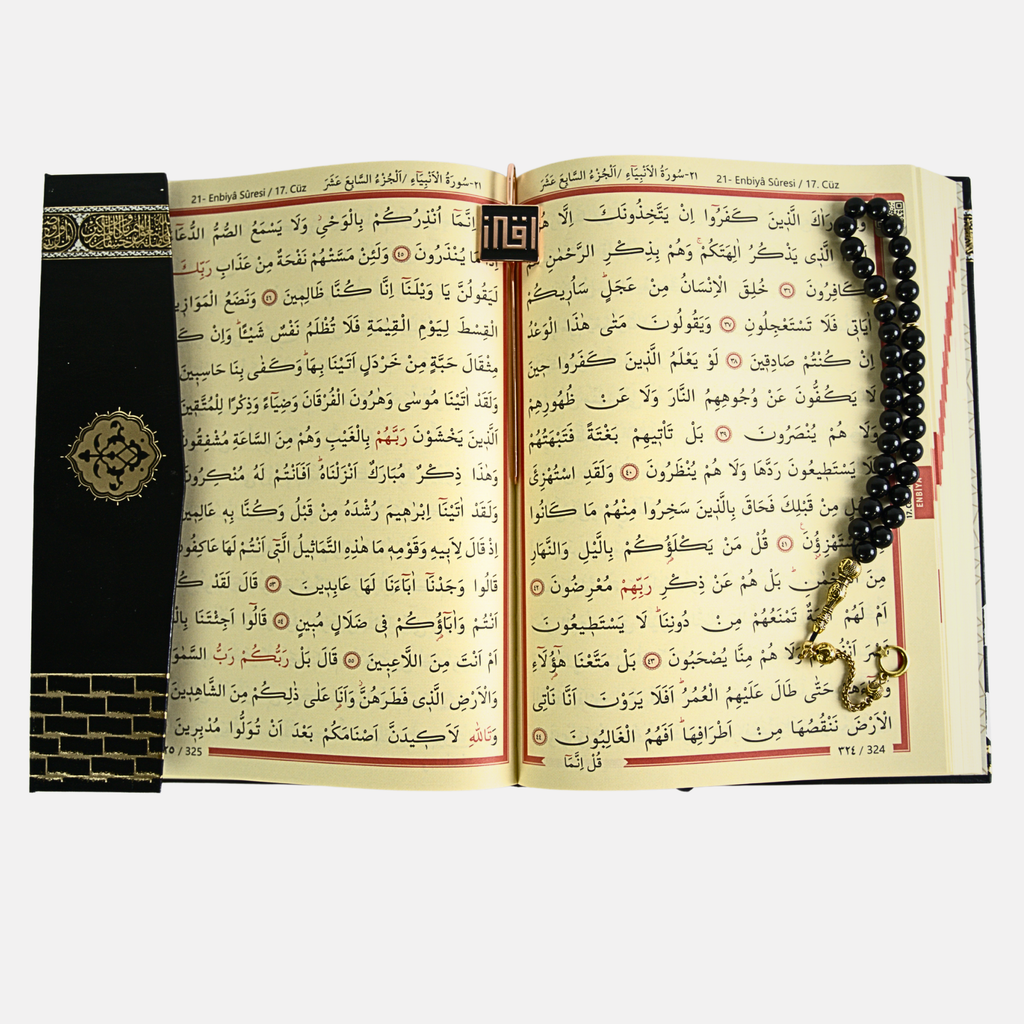 ٢١-سُورَةُ الْاَنْبِيَٓاءِ /اَلْجُزْءُ السَّابِعَ عَشَرَ 21- Enbiyâ Sûresi / 17. Cüz
الَّذ۪ينَ كَفَرُٓوا اِنْ يَتَّخِذُونَكَ اِلَّا
الَّذ۪ي يَذْكُرُ اٰلِهَتَكُمْۚ وَهُمْ بِذِكْرِ الرَّحْمٰنِ
كَافِرُونَ ﴿٣٦﴾ خُلِقَ الْاِنْسَانُ مِنْ عَجَلٍۜ سَاُر۪يكُمْ
اٰيَات۪ي فَلَا تَسْتَعْجِلُونِ ﴿٣٧﴾ وَيَقُولُونَ مَتٰى هٰذَا الْوَعْدُ
اِنْ كُنْتُمْ صَادِق۪ينَ ﴿٣٨﴾ لَوْ يَعْلَمُ الَّذ۪ينَ كَفَرُوا ح۪ينَ
لَا يَكُفُّونَ عَنْ وُجُوهِهِمُ النَّارَ وَلَا عَنْ ظُهُورِهِمْ
وَلَا هُمْ يُنْصَرُونَ ﴿٣٩﴾ بَلْ تَأْت۪يهِمْ بَغْتَةً فَتَبْهَتُهُمْ
فَلَا يَسْتَط۪يعُونَ رَدَّهَا وَلَا هُمْ يُنْظَرُونَ ﴿٤٠﴾ وَلَقَدِ اسْتُهْزِئَ
مِنْ قَبْلِكَ فَحَاقَ بِالَّذ۪ينَ سَخِرُوا مِنْهُمْ مَا كَانُوا
﴿٤١﴾ قُلْ مَنْ يَكْلَؤُ۬كُمْ بِالَّيْلِ وَالنَّهَارِ
مِنَ بَلْ هُمْ عَنْ ذِكْرِ رَبِّهِمْ مُعْرِضُونَ ﴿٤٢﴾
اَمْ لَهُمْ تَمْنَعُهُمْ مِنْ دُونِنَاۜ لَا يَسْتَط۪يعُونَ
وَلَا هُمْ مِنَّا يُصْحَبُونَ ﴿٤٣﴾ بَلْ مَتَّعْنَا هٰٓؤُ۬لَٓاءِ
حَتّٰى طَالَ عَلَيْهِمُ الْعُمُرُۜ اَفَلَا يَرَوْنَ اَنَّا نَأْتِي
الْاَرْضَ نَنْقُصُهَا مِنْ اَطْرَافِهَاۜ اَفَهُمُ الْغَالِبُونَ ﴿٤٤﴾
٣٢٤ / 324
قُلْ اِنَّمَٓا
21- Enbiyâ Sûresi / 17. Cüz ٢١-سُورَةُ الْاَنْبِيَٓاءِ /اَلْجُزْءُ السَّابِعَ عَشَرَ
اِنَّمَٓا اُنْذِرُكُمْ بِالْوَحْيِۘ وَلَا يَسْمَعُ الصُّمُّ الدُّعَٓاءَ
يُنْذَرُونَ ﴿٤٥﴾ وَلَئِنْ مَسَّتْهُمْ نَفْحَةٌ مِنْ عَذَابِ رَبِّكَ
لَيَقُولُنَّ يَا وَيْلَنَٓا اِنَّا كُنَّا ظَالِم۪ينَ ﴿٤٦﴾ وَنَضَعُ
الْقِسْطَ لِيَوْمِ الْقِيٰمَةِ فَلَا تُظْلَمُ نَفْسٌ شَيْـًٔاۜ وَاِنْ
مِثْقَالَ حَبَّةٍ مِنْ خَرْدَلٍ اَتَيْنَا بِهَاۜ وَكَفٰى بِنَا حَاسِب۪ينَ
وَلَقَدْ اٰتَيْنَا مُوسٰى وَهٰرُونَ الْفُرْقَانَ وَضِيَٓاءً وَذِكْرًا لِلْمُتَّق۪ينَ
اَلَّذ۪ينَ يَخْشَوْنَ رَبَّهُمْ بِالْغَيْبِ وَهُمْ مِنَ السَّاعَةِ مُشْفِقُونَ
وَهٰذَا ذِكْرٌ مُبَارَكٌ اَنْزَلْنَاهُۜ اَفَاَنْتُمْ لَهُ مُنْكِرُونَ
وَلَقَدْ اٰتَيْنَٓا اِبْرٰه۪يمَ رُشْدَهُ مِنْ قَبْلُ وَكُنَّا بِه۪ عَالِم۪ينَ
اِذْ قَالَ لِاَب۪يهِ وَقَوْمِه۪ مَا هٰذِهِ التَّمَاث۪يلُ الَّت۪ٓي اَنْتُمْ لَهَا عَاكِفُونَ
قَالُوا وَجَدْنَٓا اٰبَٓاءَنَا لَهَا عَابِد۪ينَ ﴿٥٣﴾ قَالَ لَقَدْ
اَنْتُمْ وَاٰبَٓاؤُ۬كُمْ ف۪ي ضَلَالٍ مُب۪ينٍ ﴿٥٤﴾ قَالُٓوا اَجِئْتَنَا
اَمْ اَنْتَ مِنَ اللَّاعِب۪ينَ ﴿٥٥﴾ قَالَ بَلْ رَبُّكُمْ رَبُّ
وَالْاَرْضِ الَّذ۪ي فَطَرَهُنَّۘ وَاَنَا۬ عَلٰى ذٰلِكُمْ مِنَ الشَّاهِد۪ينَ
وَتَاللّٰهِ لَاَك۪يدَنَّ اَصْنَامَكُمْ بَعْدَ اَنْ تُوَلُّوا مُدْبِر۪ينَ
/ 325